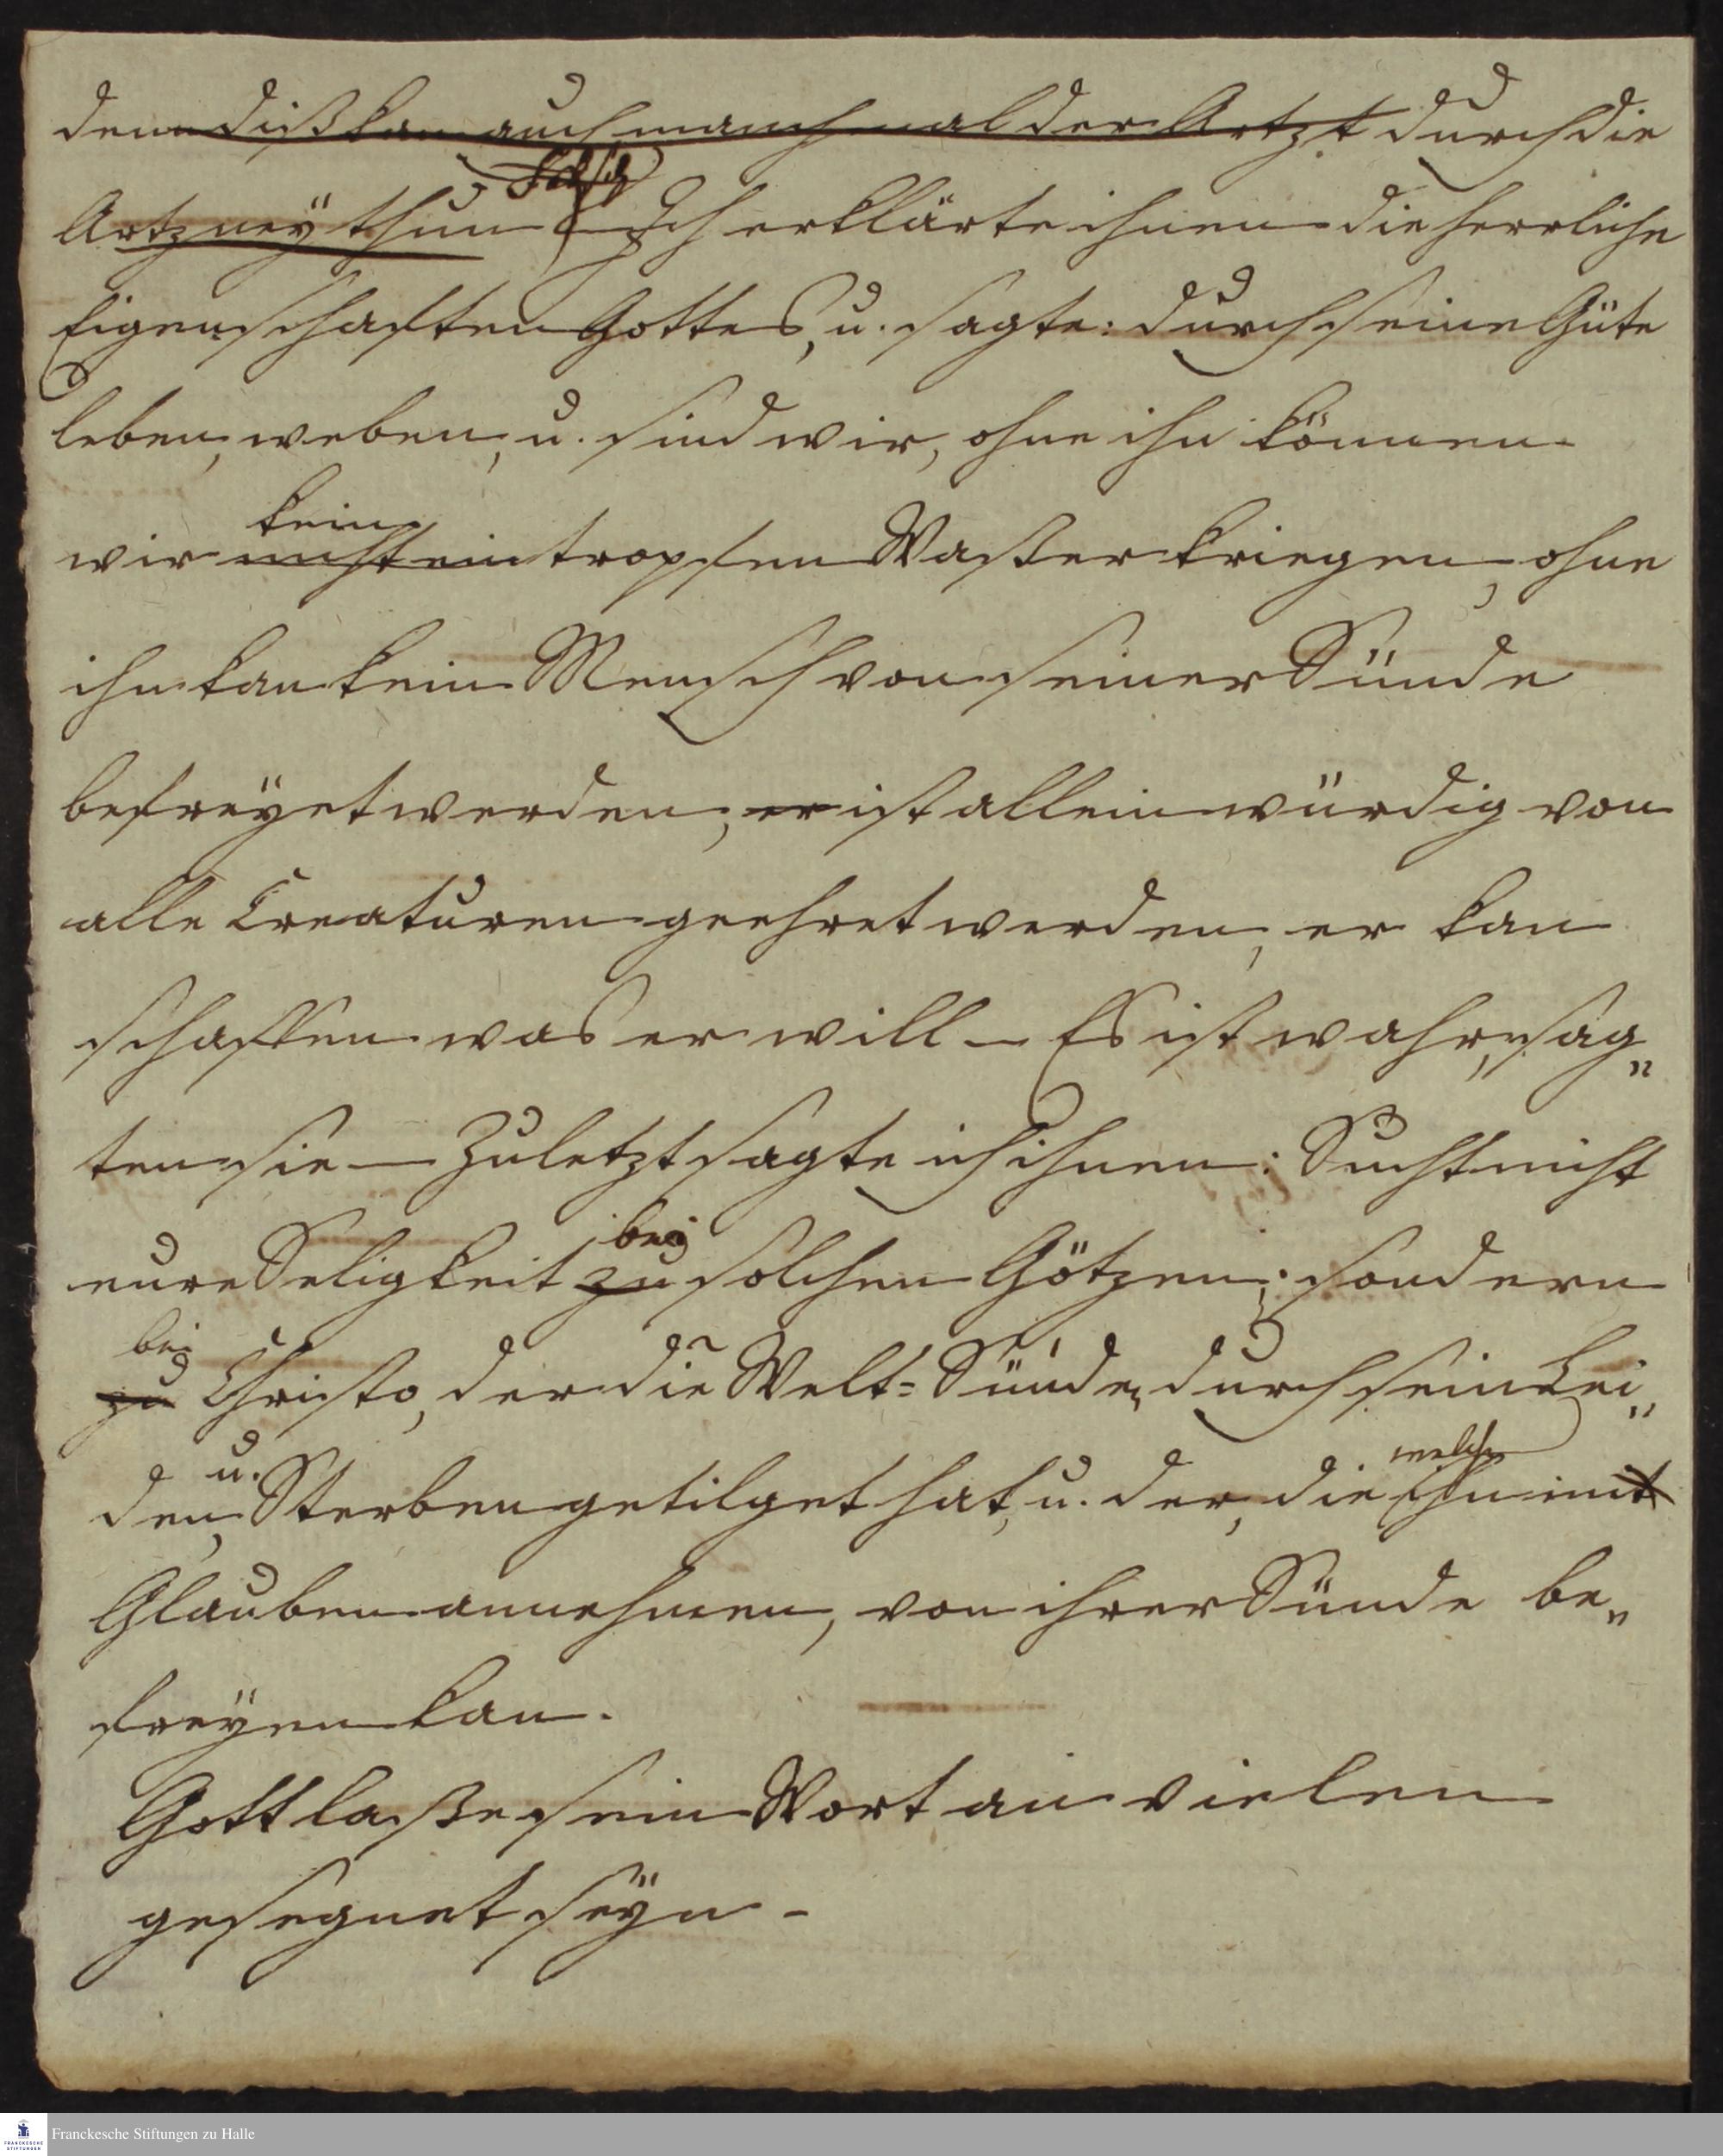 denn diß kan auch manchmal der Artzt durch die
Artzney thun Ich erklärte ihnen die herrliche
Eigenschaften Gottes, u. sagte: durch seine Güte
leben, weben, u. sind wir, ohne ihn können
kein
wir nicht ein tropfen Waßer kriegen, ohne
ihn kan kein Mensch von seiner Sünde
befreyet werden, er ist allein würdig von
alle Creaturen geehret werden, er kan
schaffen was er will – Es ist wahr, sag„
ten sie – Zuletzt sagte ich ihnen: Sucht nicht
bei
eure Seligkeit zu solchen Götzen; sondern
bei
zu Christo, der die Welt=Sünde, durch sein Lei„
u. welche
den, Sterben getilget hat, u. der, die ihn mit
Glauben annehmen, von ihrer Sünde be„
freyen kan.
Gott laße sein Wort an vielen
gesegnet seyn –
FRANCKESCHE STIFTUNGEN
Franckesche Stiftungen zu Halle